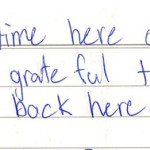 time here
grateful t
back here